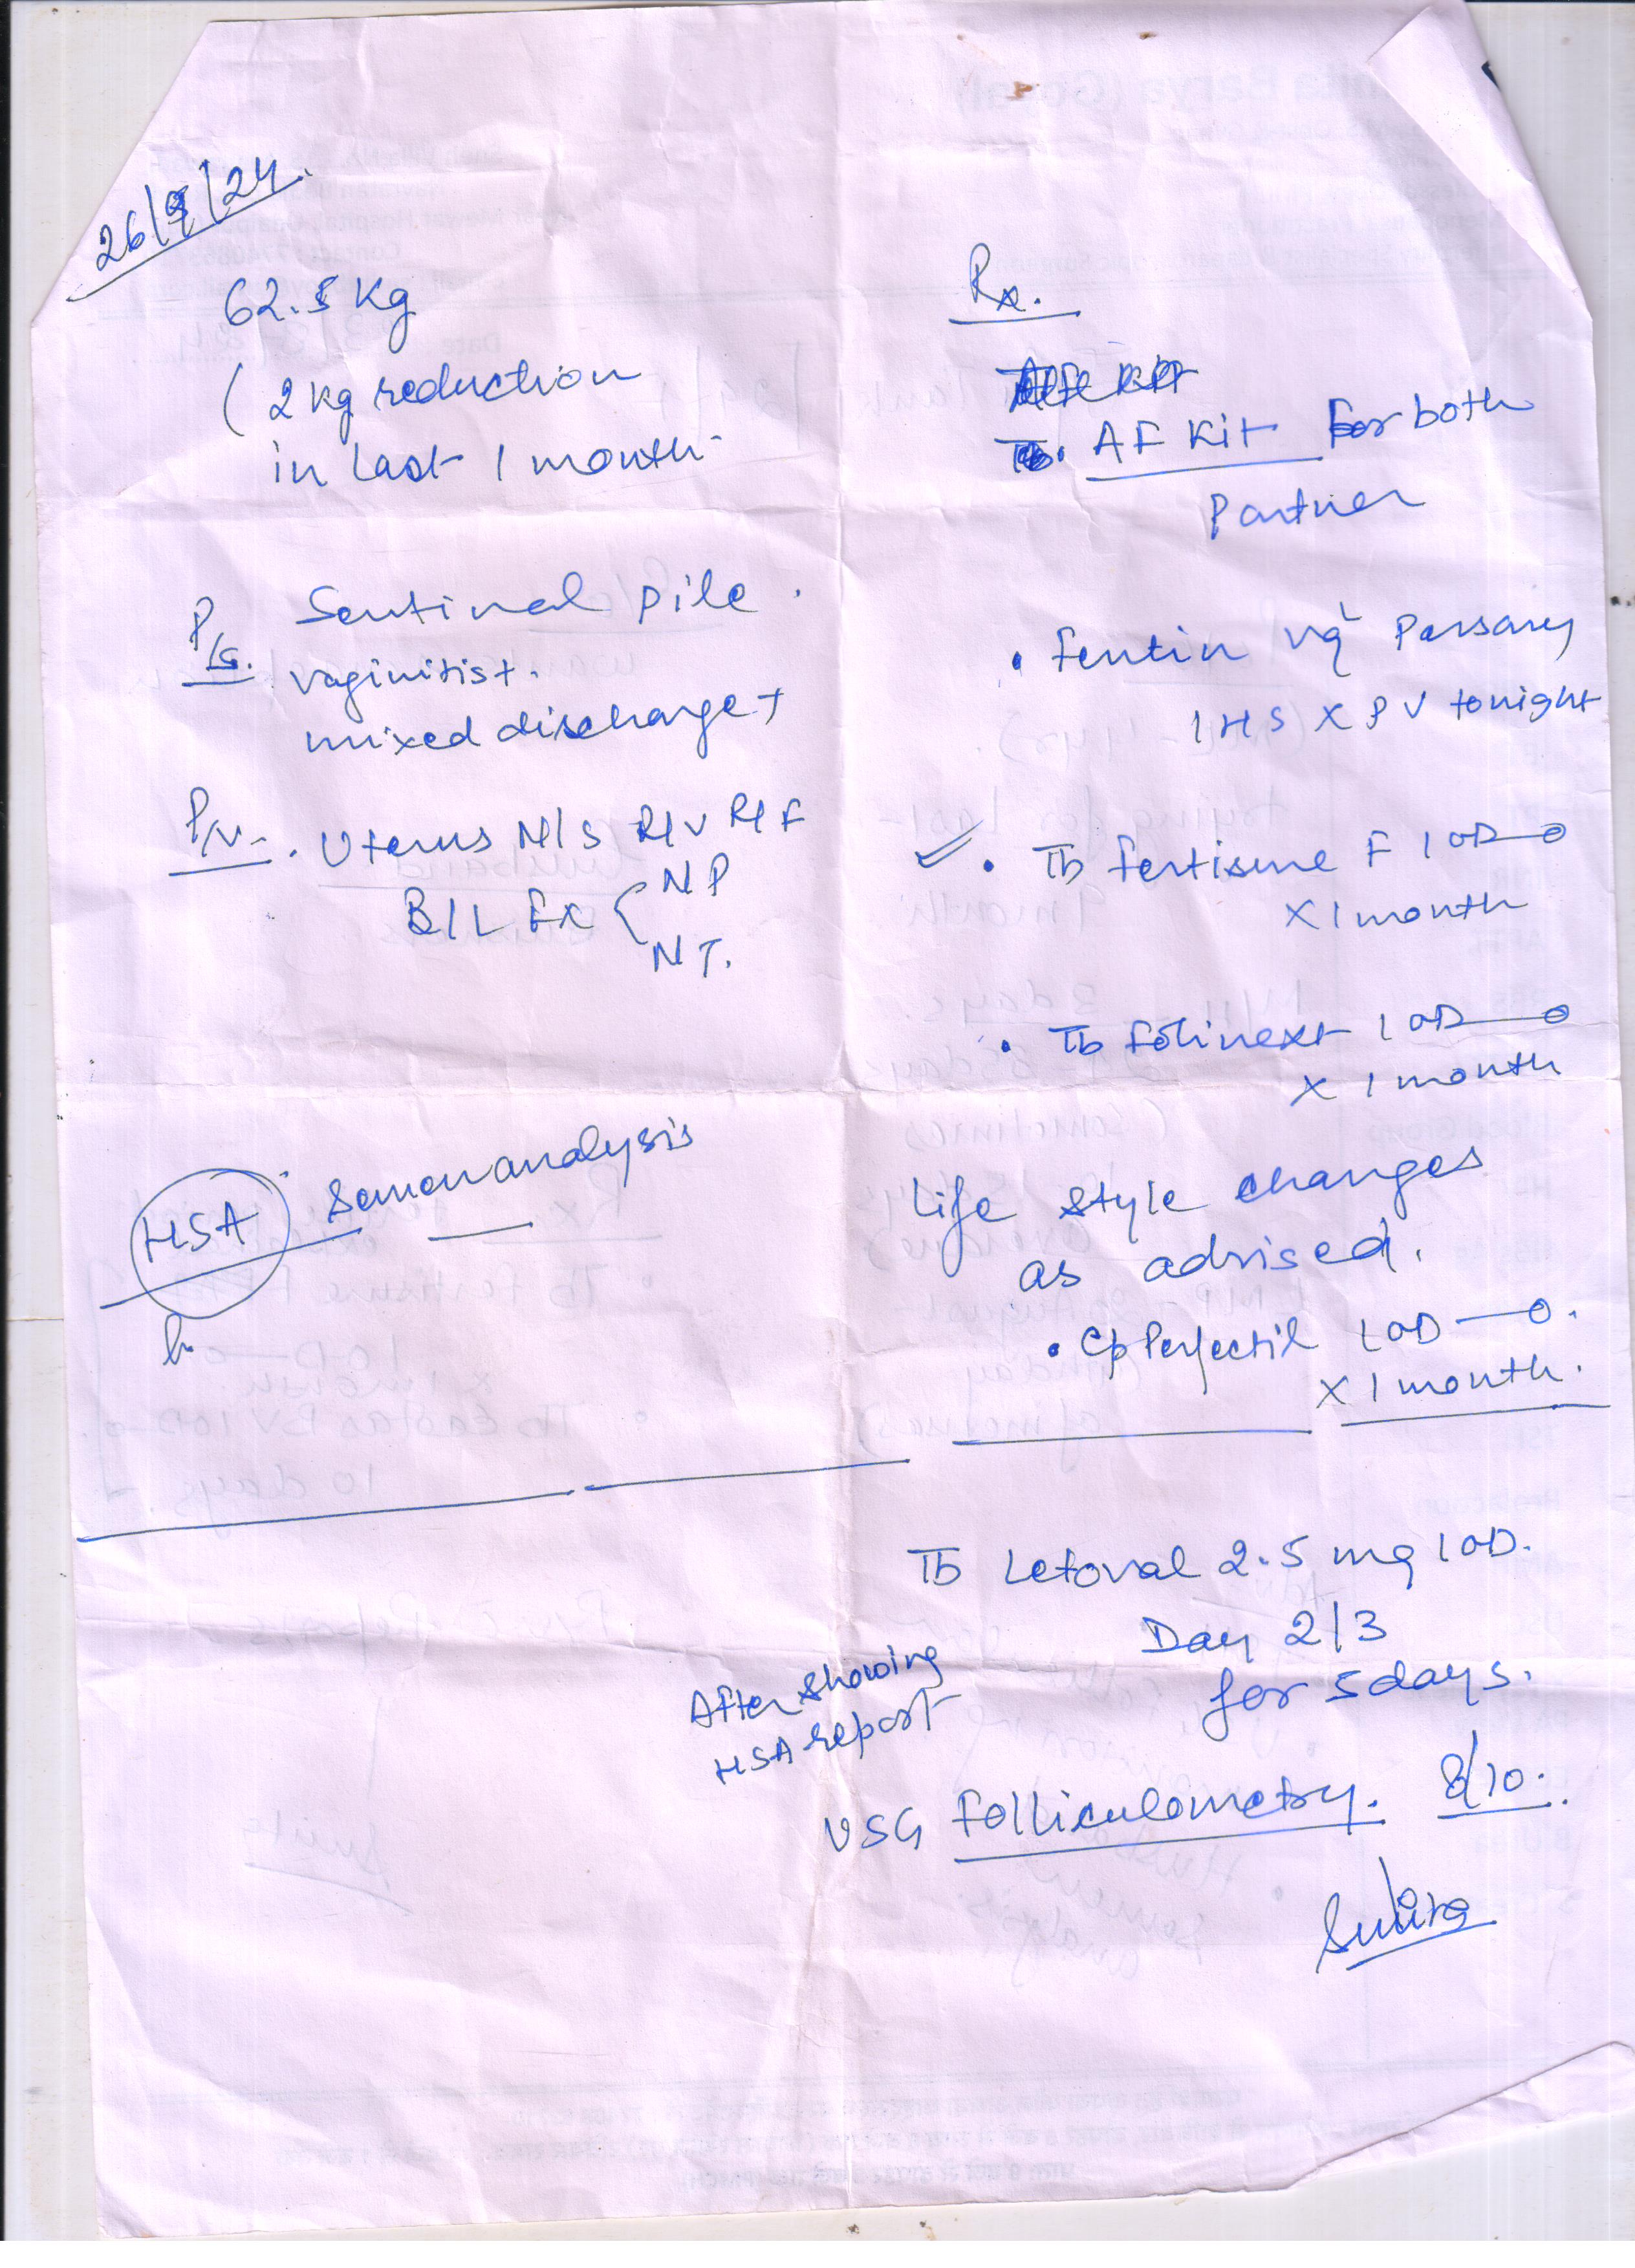 26/9/24.
62.5 Kg
( 2 kg reduction
in last 1 month.
P/S. Sentinal pile.
vaginitis+.
mixed discharge+
P/V. Uterus N/S R/V R/F
B/L Fx { NP
NT.
HSA Semen analysis
h.
Rx.
Tb. AF Kit For both
Partner
• Fentin vg Pessary
1 HS X PV tonight
• Tb Fertisure F 1 OD—o
X 1 month
• Tb folinext 1 OD—o
X 1 month
Life style changes
as advised.
• Cp Perfectil 1 OD—o.
X 1 month.
Tb Letoval 2.5 mg 1 OD.
Day 2/3
for 5 days.
After showing
HSA report
USG Folliculometry. 8/10.